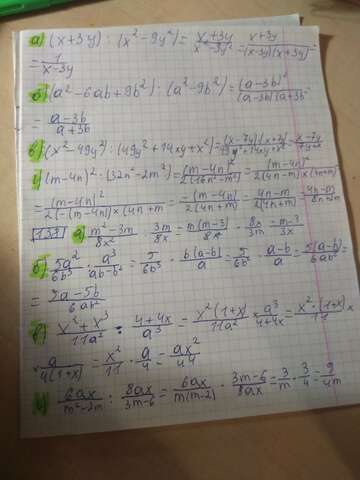 а) (x+3y) : (x²-9y²) = (x+3y)/(x²-9y²) = (x+3y)/((x-3y)(x+3y)) =
= 1/(x-3y)
б) (a²-6ab+9b²) : (a²-9b²) = (a-3b)²/((a-3b)(a+3b)) =
= (a-3b)/(a+3b)
в) (x²-49y²) : (49y²+14xy+x²) = (x-7y)(x+7y)/(49y²+14xy+x²) = (x-7y)/(7y+x)
г) (m-4n)² : (32n²-2m²) = (m-4n)²/(2(16n²-m²)) = (m-4n)²/(2(4n-m)(4n+m)) =
= (m-4n)²/(2(-(m-4n))×(4n+m)) = -(m-4n)/(2(4n+m)) = (4n-m)/(2(4n+m)) = (4n-m)/(8n+2m)
1331 а) (m²-3m)/8x² : 3m/8x = m(m-3)/8x² · 8x/3m = (m-3)/3x
б) 5a²/6b³ : a³/(ab-b²) = 5/6b³ · b(a-b)/a = 5/6b² · (a-b)/a = 5(a-b)/6ab² =
= (5a-5b)/6ab²
в) (x²+x³)/11a² : (4+4x)/a³ = x²(1+x)/11a² × a³/(4+4x) = x²·(1+x)/11 ×
× a/4(1+x) = x²/11 · a/4 = ax²/44
г) 6ax/(m²-2m) : 8ax/(3m-6) = 6ax/m(m-2) · (3m-6)/8ax = 3/m · 3/4 = 9/4m